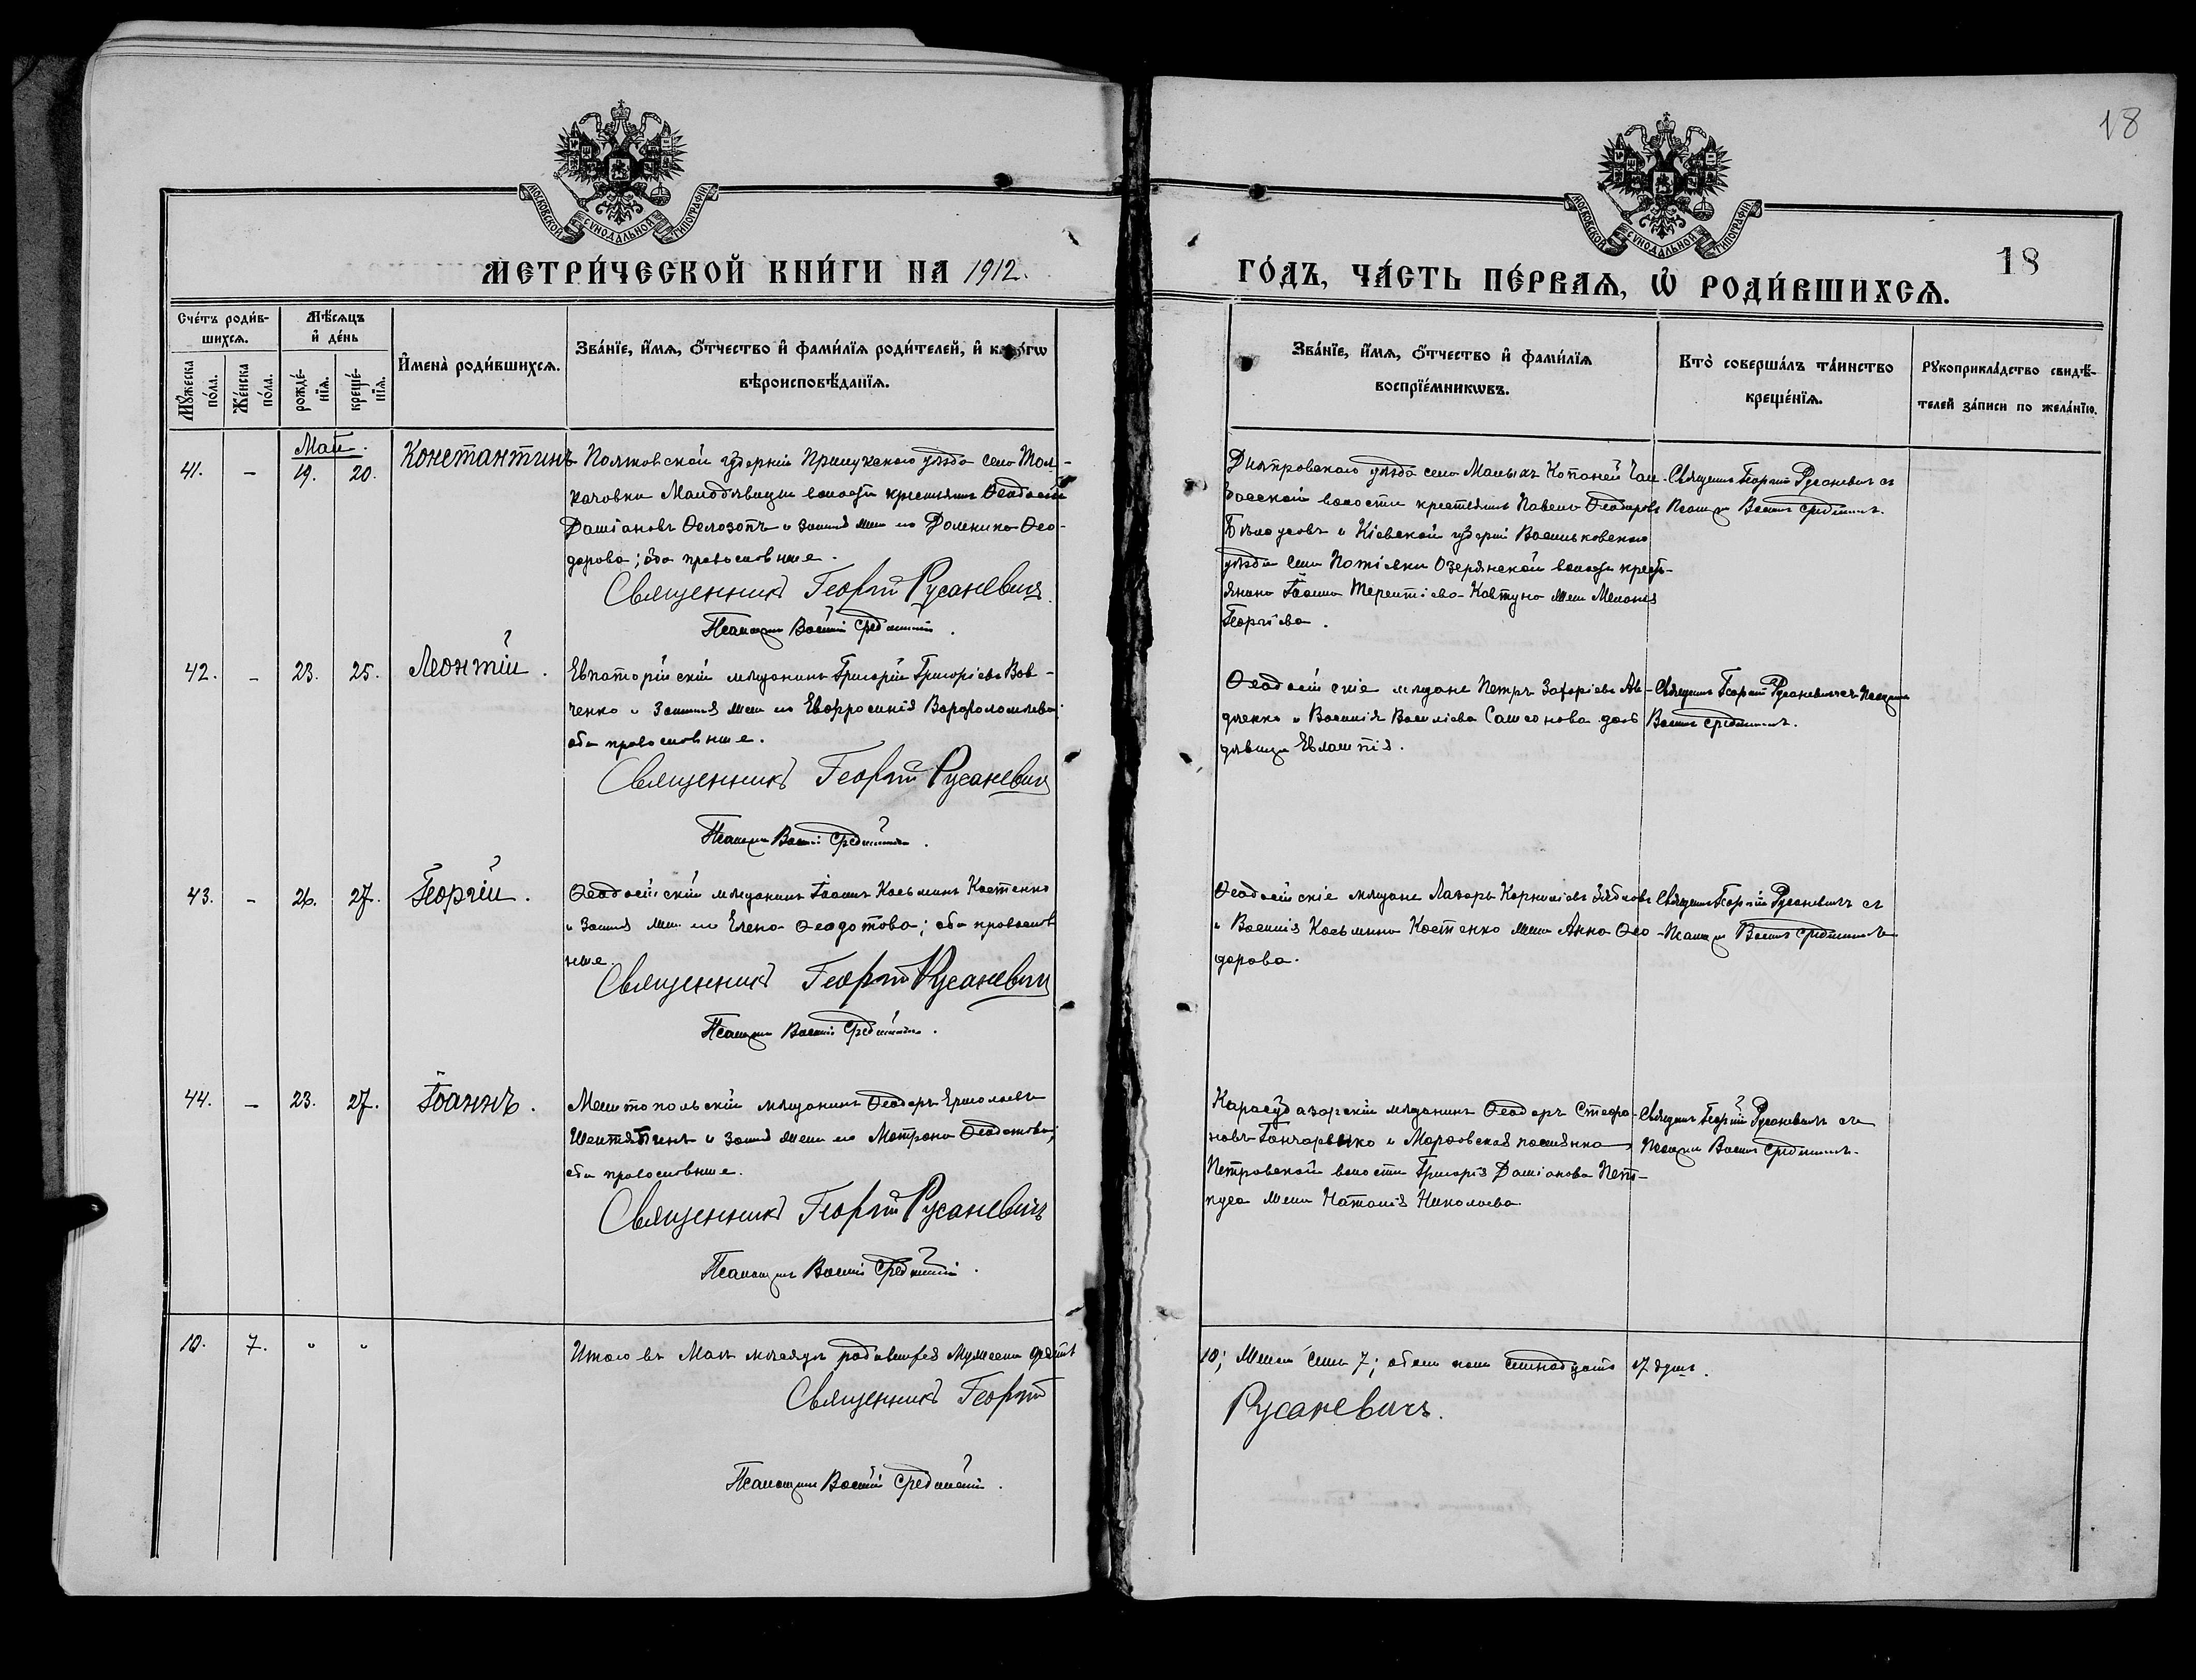 18
МОСКОВСКОЙ СѴНОДАЛЬНОЙ ТИПОГРАФІИ
МОСКОВСКОЙ СѴНОДАЛЬНОЙ ТИПОГРАФІИ
МЕТРИ́ЧЕСКОЙ КНИ́ГИ НА 1912.
ГО́ДЪ, ЧА́СТЬ ПЕ́РВАѦ, Ѡ҆ РОДИ́ВШИХСѦ.
18
Сче́тъ роди́в-
шихсѧ.
Мꙋ́жеска по́ла.
Же́нска по́ла.
Мѣ́сѧцъ
и҆ де́нь
рожде́-
нїѧ.
креще́-
нїѧ.
И҆мена̀ роди́вшихсѧ.
Зва́нїе, и҆́мѧ, ѻ҆́тчество и҆ фами́лїѧ роди́телей, и҆ како́гѡ
вѣроисповѣ́данїѧ.
Зва́нїе, и҆́мѧ, ѻ҆́тчество и҆ фами́лїѧ
воспрїе́мникѡвъ.
Кто̀ соверша́лъ та́инство
креще́нїѧ.
Рꙋкоприкла́дство свидѣ́-
телей за́писи по жела́нїю.
Май.
41. - 19. 20. Константинъ
Полтавской губерніи Прилукскаго уѣзда села Тол-
качовки Малодѣвицкой волости крестьянинъ Ѳеодосій
Даміановъ и законная жена его Доменика Ѳео-
дорова; оба православные.
Священникъ Георгій Русаневичъ.
Псаломщикъ Василій Срединскій.
Днѣпровскаго уѣзда села Малыхъ Копаней Чал-
басской волости крестьянинъ Павелъ Ѳеодоровъ
Бѣлоусовъ и Кіевской губерніи Васильковскаго
уѣзда села Потіевки Озерянской волости кресть-
янина Іоанна Терентіева Ковтуна жена Меланія
Георгіева.
Священникъ Георгій Русаневичъ съ
Псаломщ. Василіемъ Срединскимъ.
42. - 23. 25. Леонтій.
Евпаторійскій мѣщанинъ Григорій Григоріевъ Вов-
ченко и законная жена его Евфросинія Варфоломеева;
оба православные.
Священникъ Георгій Русаневичъ
Псаломщикъ Василій Срединскій.
Ѳеодосійскіе мѣщане Петръ Захаріевъ Ав-
дѣенко и Василія Василіева Самсонова дочь
дѣвица Евлампія.
Священникъ Георгій Русаневичъ съ Псаломщ.
Василіемъ Срединскимъ.
43. - 26. 27. Георгій.
Ѳеодосійскій мѣщанинъ Іоаннъ Косьминъ Костенко
и законная жена его Елена Ѳеодотова; оба православ
ные.
Священникъ Георгій Русаневичъ
Псаломщикъ Василій Срединскій.
Ѳеодосійскіе мѣщане Лазарь Корниліевъ Зябловъ
и Василія Косьмина Костенко жена Анна Ѳео-
дорова.
Священникъ Георгій Русаневичъ съ
Псаломщ. Василіемъ Срединскимъ
44. - 23. 27. Іоаннъ.
Мелитопольскій мѣщанинъ Ѳеодоръ Ермолаевъ
и законная жена его Матрона Ѳеодотова;
оба православные.
Священникъ Георгій Русаневичъ
Псаломщикъ Василій Срединскій.
Карасубазарскій мѣщанинъ Ѳеодоръ Стефа-
новъ Гончаренко и Марфовская поселянка
Петровской волости Григорія Даміанова Пет-
жена Наталія Николаева.
Священникъ Георгій Русаневичъ съ
Псаломщ. Василіемъ Срединскимъ.
10. 7. " "
Итого въ Маѣ мѣсяцѣ родившихся мужеска десять
10; женска семь 7; обоего пола семнадцать 17 душъ.
Священникъ Георгій
Русаневичъ.
Псаломщикъ Василій Срединскій.